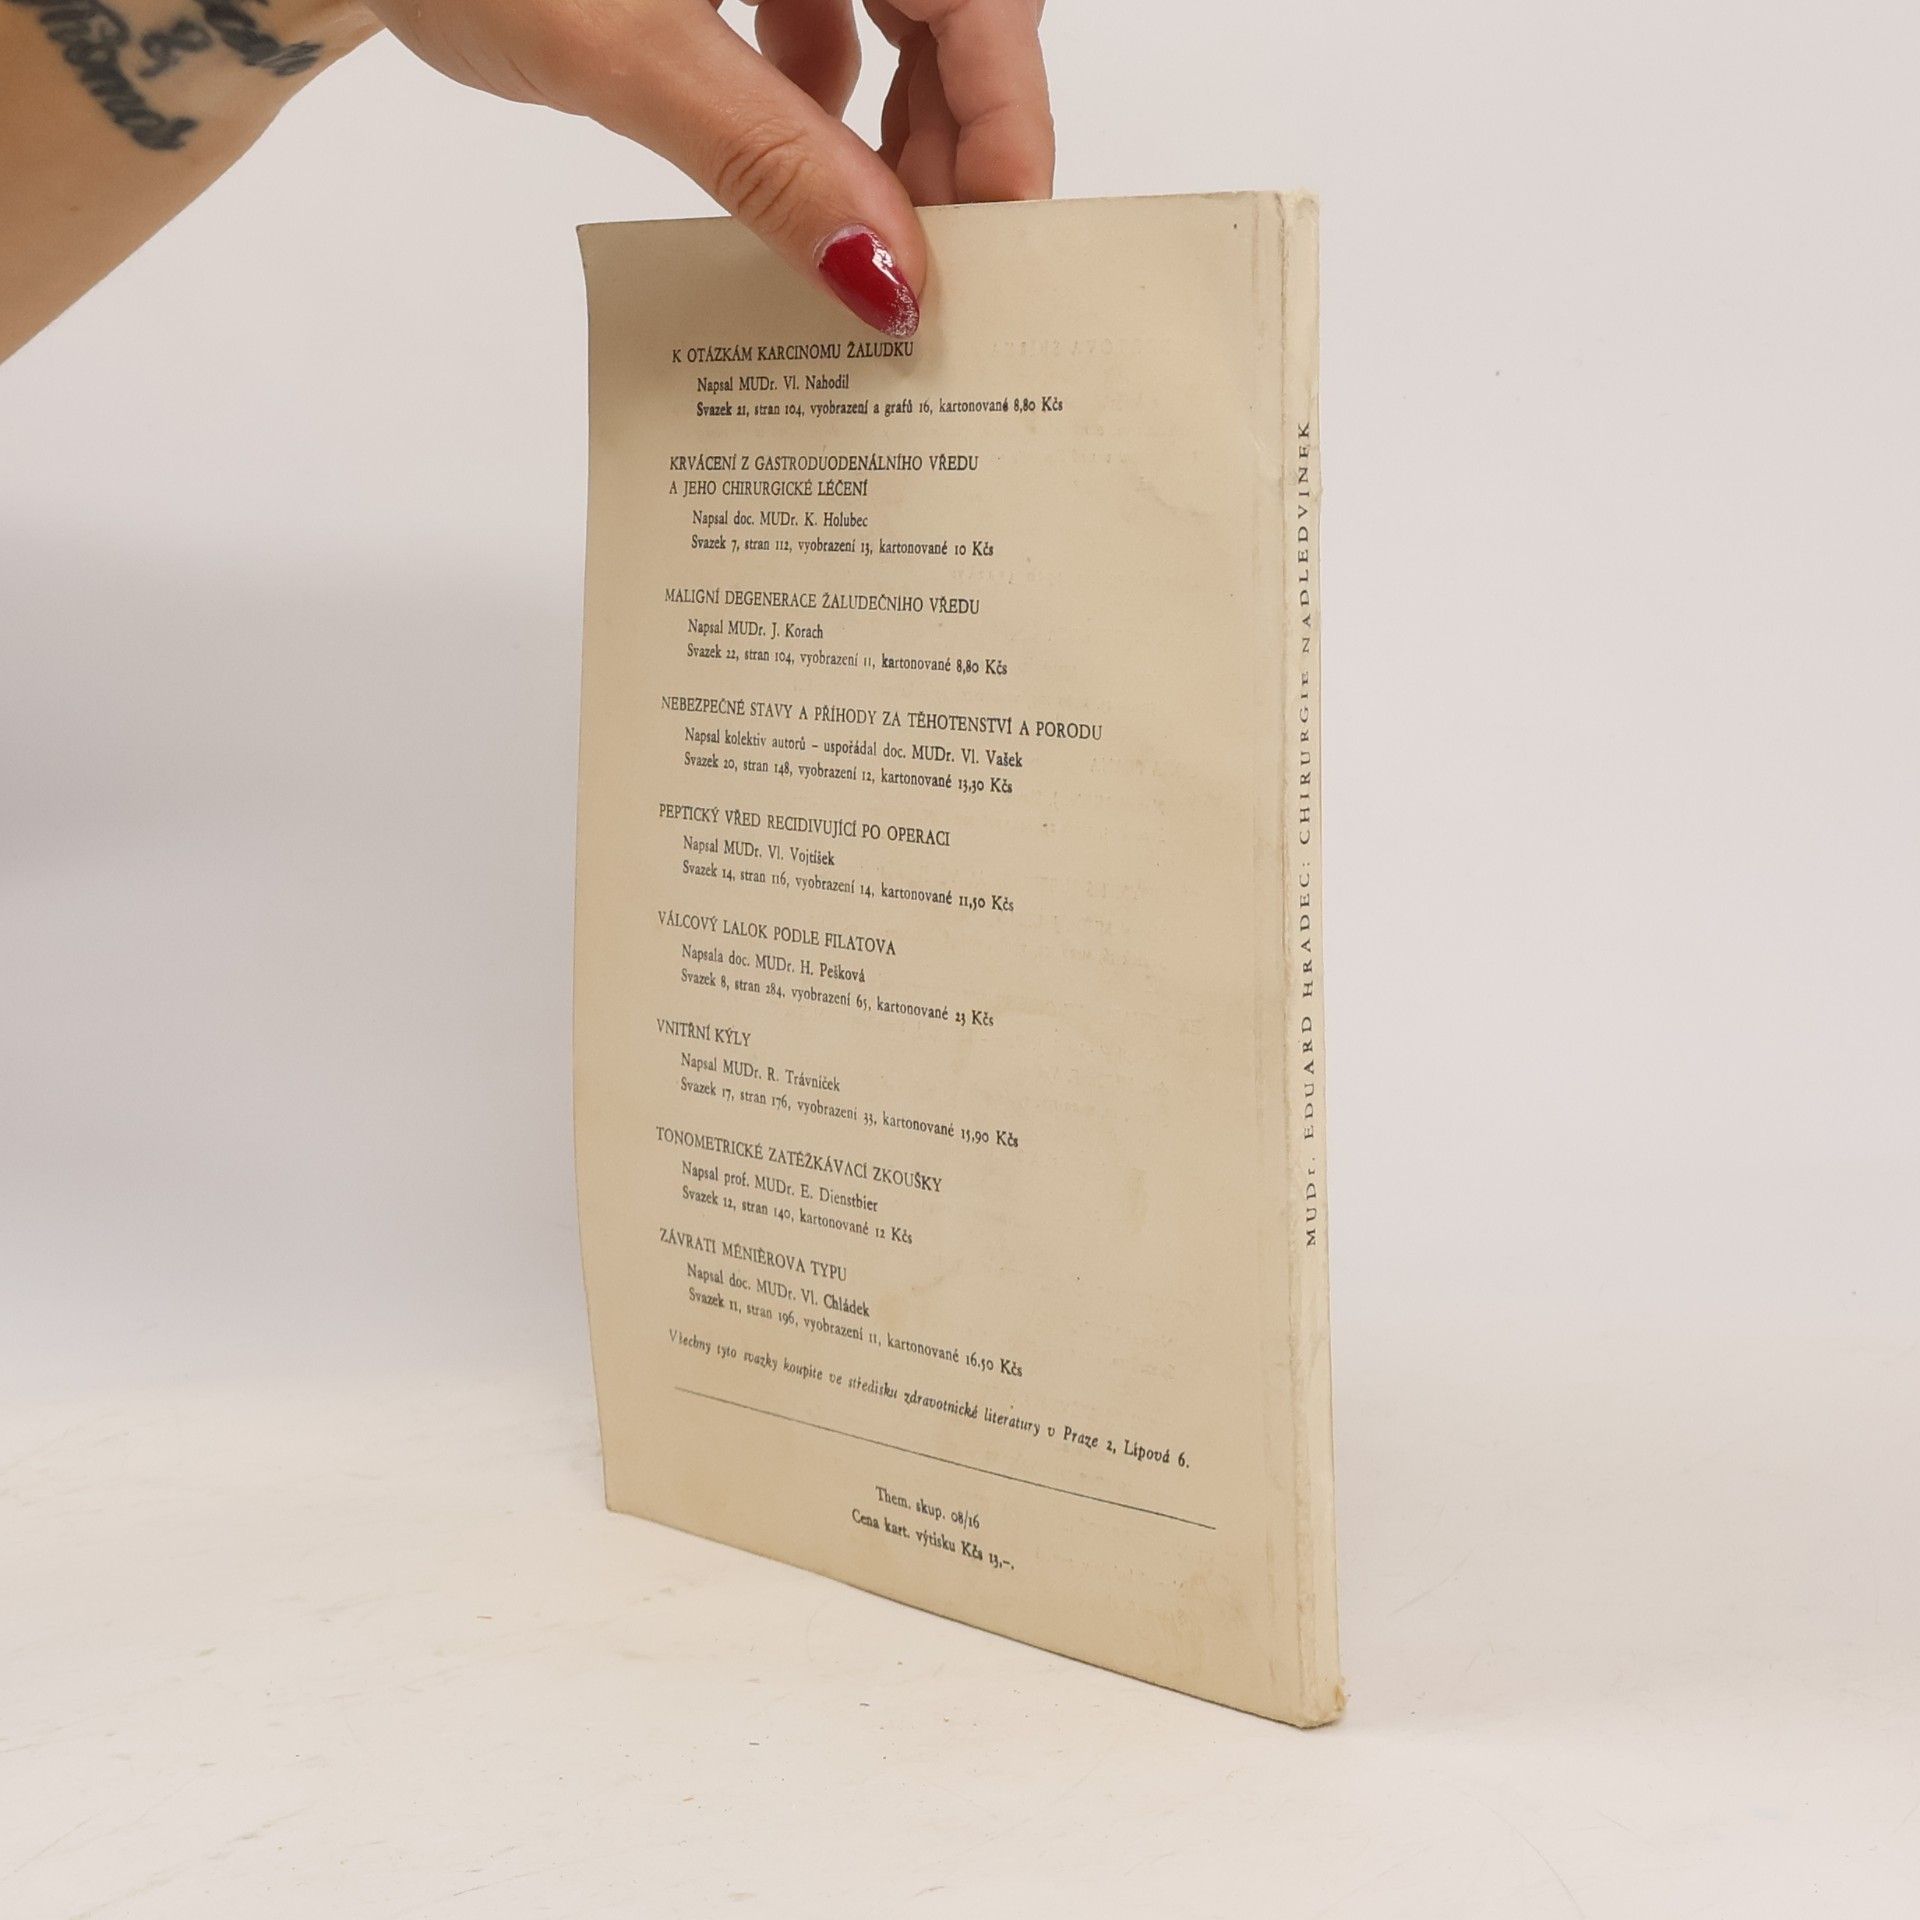 &
Thomas
K OTÁZKÁM KARCINOMU ŽALUDKU
Napsal MUDr. Vl. Nahodil
Svazek 21, stran 104, vyobrazení a grafů 16, kartonované 8,80 Kčs
KRVÁCENÍ Z GASTRODUODENÁLNÍHO VŘEDU
A JEHO CHIRURGICKÉ LÉČENÍ
Napsal doc. MUDr. K. Holubec
Svazek 7, stran 112, vyobrazení 13, kartonované 10 Kčs
MALIGNÍ DEGENERACE ŽALUDEČNÍHO VŘEDU
Napsal MUDr. J. Korach
Svazek 22, stran 104, vyobrazení 11, kartonované 8,80 Kčs
NEBEZPEČNÉ STAVY A PŘÍHODY ZA TĚHOTENSTVÍ A PORODU
Napsal kolektiv autorů – uspořádal doc. MUDr. Vl. Vašek
Svazek 20, stran 148, vyobrazení 12, kartonované 13,30 Kčs
PEPTICKÝ VŘED RECIDIVUJÍCÍ PO OPERACI
Napsal MUDr. Vl. Vojtíšek
Svazek 14, stran 116, vyobrazení 14, kartonované 11,50 Kčs
VÁLCOVÝ LALOK PODLE FILATOVA
Napsala doc. MUDr. H. Pešková
Svazek 8, stran 284, vyobrazení 65, kartonované 23 Kčs
VNITŘNÍ KÝLY
Napsal MUDr. R. Trávníček
Svazek 17, stran 176, vyobrazení 33, kartonované 15,90 Kčs
TONOMETRICKÉ ZATĚŽKÁVACÍ ZKOUŠKY
Napsal prof. MUDr. E. Dienstbier
Svazek 12, stran 140, kartonované 12 Kčs
ZÁVRATI MÉNIÈROVA TYPU
Napsal doc. MUDr. Vl. Chládek
Svazek 11, stran 196, vyobrazení 11, kartonované 16.50 Kčs
Všechny tyto svazky koupíte ve středisku zdravotnické literatury v Praze 2, Lípová 6.
Them. skup. 08/16
Cena kart. výtisku Kčs 13,–.
MUDr. EDUARD HRADEC: CHIRURGIE NADLEDVINEK